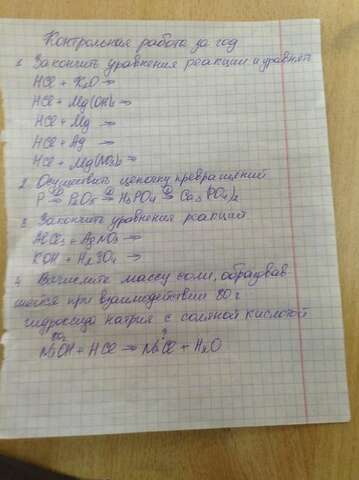 Контрольная работа за год
1. Закончить уравнения реакции и уравнять
HCl + K₂O →
HCl + Mg(OH)₂ →
HCl + Mg →
HCl + Ag →
HCl + Mg(NO₃)₂ →
2. Осуществить цепочку превращений
P →① P₂O₅ →② H₃PO₄ →③ Ca₃(PO₄)₂
3. Закончить уравнения реакций
AlCl₃ + AgNO₃ →
KOH + H₂SO₄ →
4. Вычислите массу соли, образовав
шейся при взаимодействии 80 г
гидроксида натрия с соляной кислотой
80г ?
NaOH + HCl → NaCl + H₂O